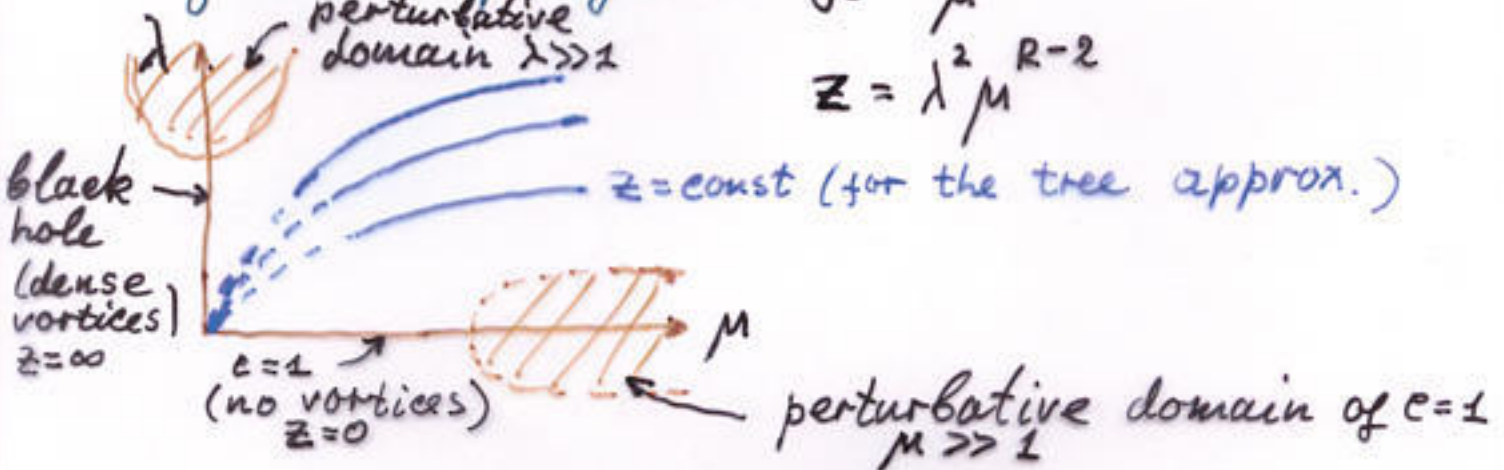 perturbative
domain λ>>1
λ
z = λ² μ^{R-2}
black
hole
(dense
vortices)
z=∞
z=const (for the tree approx.)
μ
c=1
(no vortices)
z=0
perturbative domain of c=1
μ >> 1